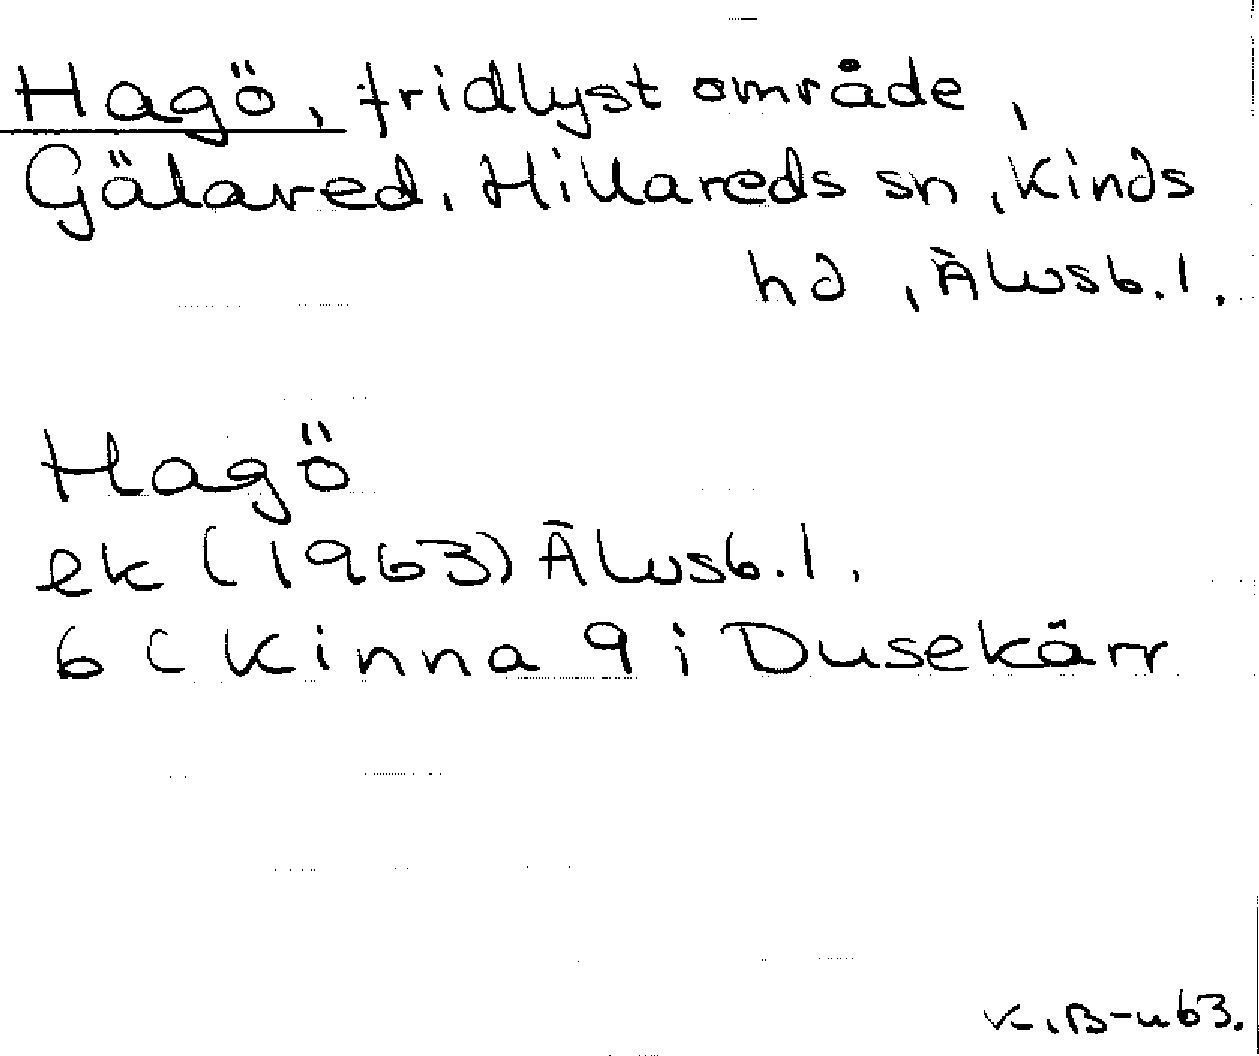 Hagö, fridlyst område,
Gälared, Hillareds sn, Kinds
hd, Älvsb.l.
Hagö
ek (1963) Älvsb.l.
6 C Kinna 9 i Dusekärr
K.B-n 63.